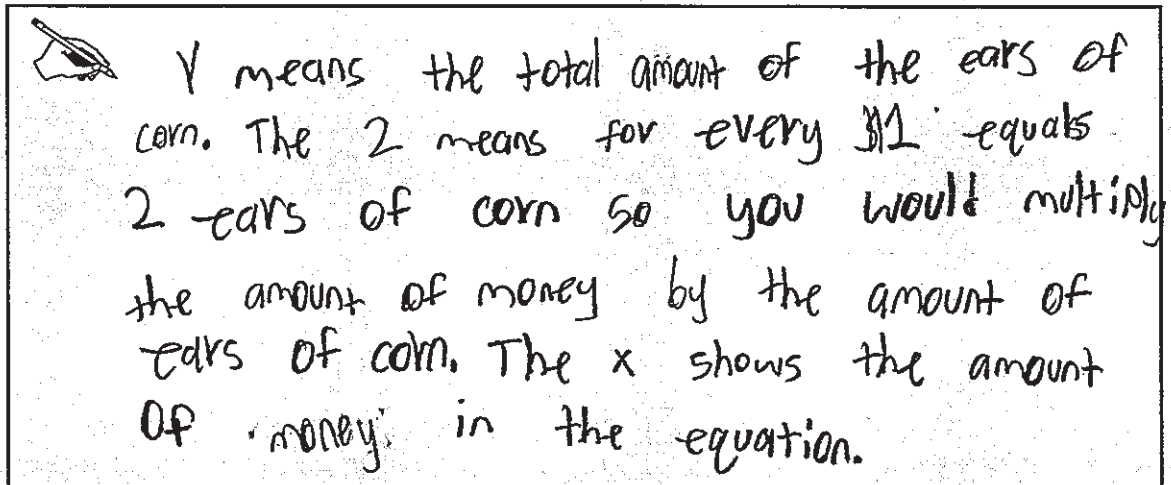 Y means the total amount of the ears of
corn. The 2 means for every $1 equals
2 ears of corn so you would multiply
the amount of money by the amount of
ears of corn. The x shows the amount
of money in the equation.